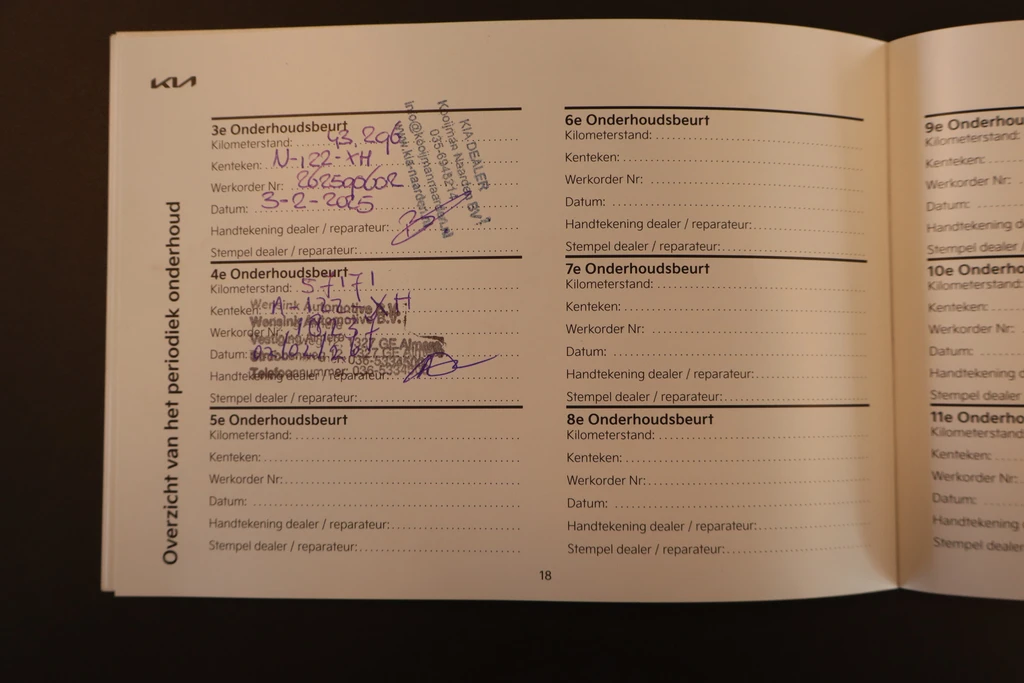 KIA
Overzicht van het periodiek onderhoud
3e Onderhoudsbeurt
Kilometerstand: 43.296
Kenteken: N-122-XH
Werkorder Nr:
Datum: 3-2-2025
Handtekening dealer / reparateur:
Stempel dealer / reparateur:
KIA DEALER
Kooijman Naarden BV
4e Onderhoudsbeurt
Kilometerstand: 57171
Kenteken:
Wensink Automotive B.V.
Werkorder Nr:
Datum:
Handtekening dealer / reparateur:
Telefoonnummer: 036-
Stempel dealer / reparateur:
5e Onderhoudsbeurt
Kilometerstand:
Kenteken:
Werkorder Nr:
Datum:
Handtekening dealer / reparateur:
Stempel dealer / reparateur:
6e Onderhoudsbeurt
Kilometerstand:
Kenteken:
Werkorder Nr:
Datum:
Handtekening dealer / reparateur:
Stempel dealer / reparateur:
7e Onderhoudsbeurt
Kilometerstand:
Kenteken:
Werkorder Nr:
Datum:
Handtekening dealer / reparateur:
Stempel dealer / reparateur:
8e Onderhoudsbeurt
Kilometerstand:
Kenteken:
Werkorder Nr:
Datum:
Handtekening dealer / reparateur:
Stempel dealer / reparateur:
18
9e Onderhou
Kilometerstand:
Kenteken:
Werkorder Nr:
Datum:
Handtekening d
Stempel dealer /
10e Onderho
Kilometerstand:
Kenteken:
Werkorder Nr:
Datum:
Handtekening d
Stempel dealer
11e Onderho
Kilometerstand
Kenteken:
Werkorder Nr:
Datum:
Handtekening
Stempel dealer